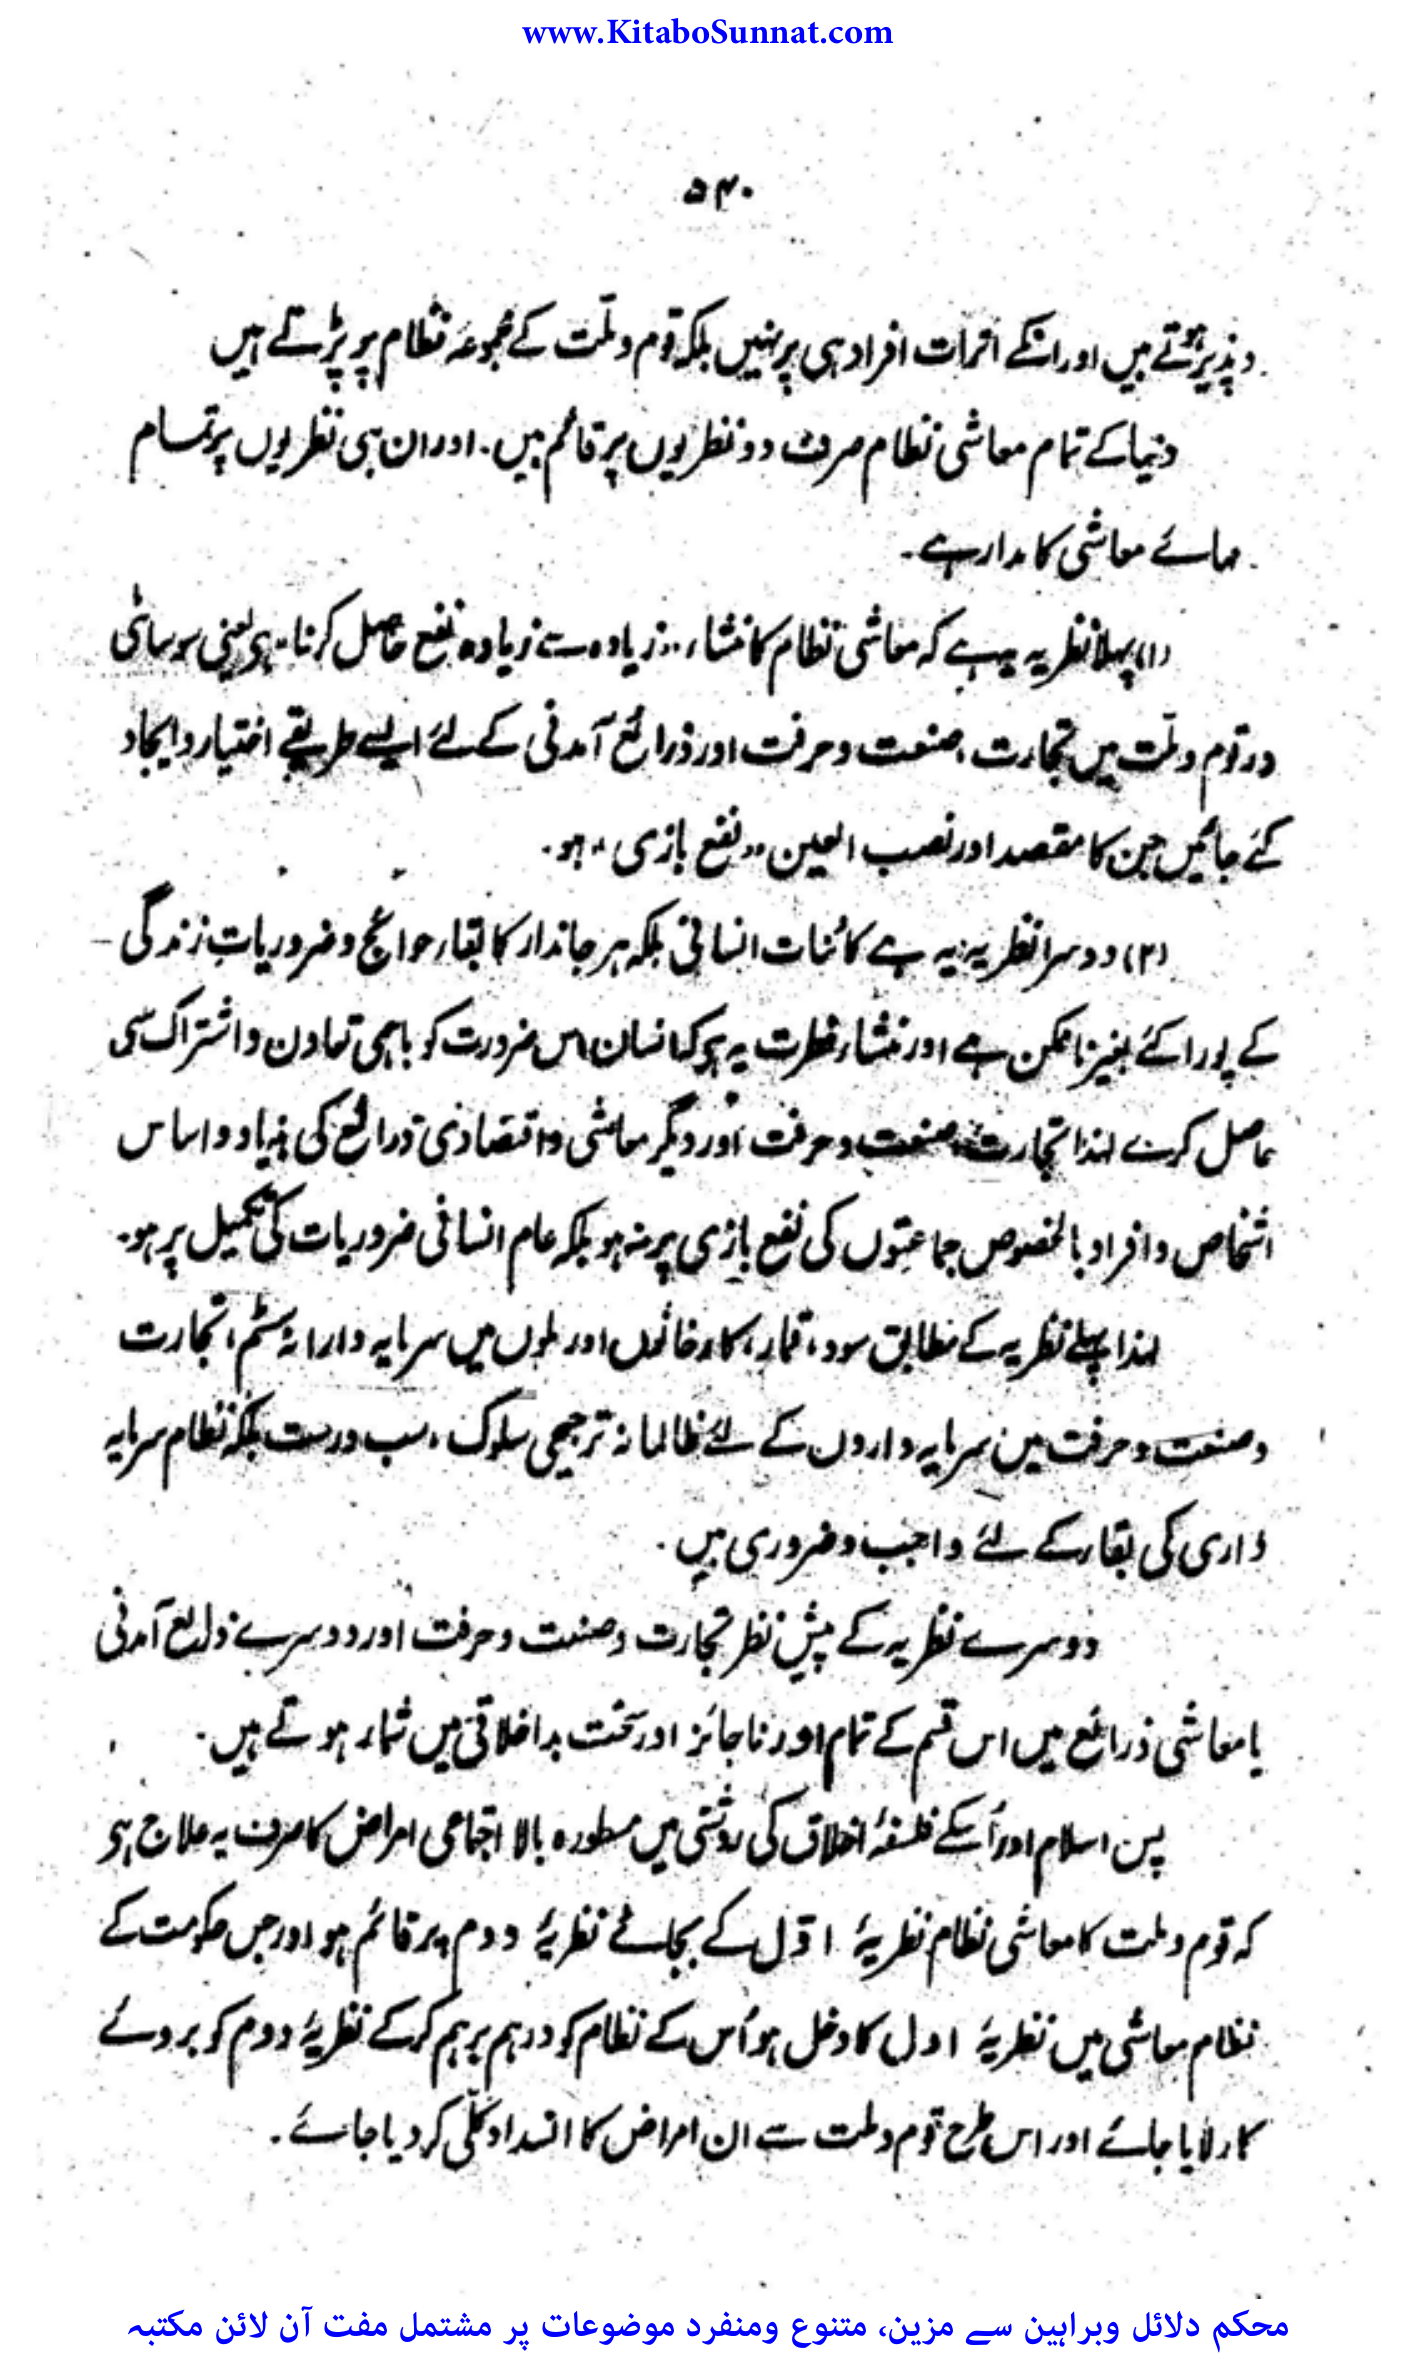 www.KitaboSunnat.com
۵۴۰
و پذیر ہوتے ہیں اور انکے اثرات افراد ہی پر نہیں بلکہ قوم و ملّت کے مجموعۂ نظام پر پڑتے ہیں
دنیا کے تمام معاشی نظام صرف دو نظریوں پر قائم ہیں۔ اور ان ہی نظریوں پر تمام
ہائے معاشی کا مدار ہے۔
(۱) پہلا نظریہ یہ ہے کہ معاشی نظام کا منشاء ”زیادہ سے زیادہ نفع حاصل کرنا“ ہی یعنی سوسائٹی
در قوم و ملّت میں تجارت، صنعت و حرفت اور ذرائع آمدنی کے لئے ایسے طریقے اختیار و ایجاد
کئے جائیں جن کا مقصد اور نصب العین ”نفع بازی“ ہو۔
(۲) دوسرا نظریہ یہ ہے کائنات انسانی بلکہ ہر جاندار کا بقار حوائج و ضروریاتِ زندگی
کے پورا کئے بغیر ناممکن ہے اور منشارِ فطرت یہ ہی کہ انسان اس ضرورت کو باہمی تعاون و اشتراک سی
حاصل کرے لہذا تجارت، صنعت و حرفت اور دیگر معاشی و اقتصادی ذرائع کی بنیاد و اساس
اشخاص و افراد بالخصوص جماعتوں کی نفع بازی پر نہ ہو بلکہ عام انسانی ضروریات کی تکمیل پر ہو۔
لہذا پہلے نظریہ کے مطابق سود، قمار، کارخانوں اور ملوں میں سرمایہ دارانہ سسٹم، تجارت
و صنعت و حرفت میں سرمایہ داروں کے لئے ظالمانہ ترجیحی سلوک، سب درست بلکہ نظام سرمایہ
داری کی بقار کے لئے واجب و ضروری ہیں۔
دوسرے نظریہ کے پیش نظر تجارت و صنعت و حرفت اور دوسرے ذرائع آمدنی
یا معاشی ذرائع میں اس قسم کے تمام امور ناجائز اور سخت بداخلاقی میں شمار ہوتے ہیں۔
پس اسلام اور اُسکے فلسفۂ اخلاق کی روشنی میں مسطورہ بالا اجتماعی امراض کا صرف یہ علاج ہی
کہ قوم و ملت کا معاشی نظام نظریۂ اوّل کے بجائے نظریۂ دوم پر قائم ہو اور جس حکومت کے
نظام معاشی میں نظریۂ اول کا دخل ہو اُس کے نظام کو درہم برہم کرکے نظریۂ دوم کو بروئے
کار لایا جائے اور اس طرح قوم و ملت سے ان امراض کا انسداد کلّی کر دیا جائے۔
محکم دلائل وبراہین سے مزین، متنوع ومنفرد موضوعات پر مشتمل مفت آن لائن مکتبہ